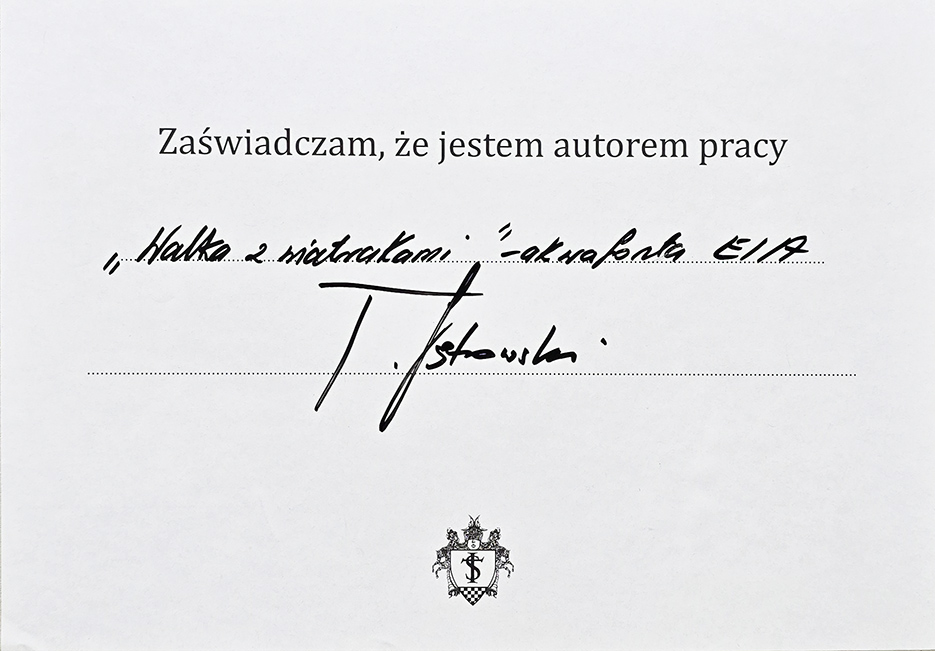 Zaświadczam, że jestem autorem pracy
„Walka z wiatrakami” - akwaforta E/A
T.